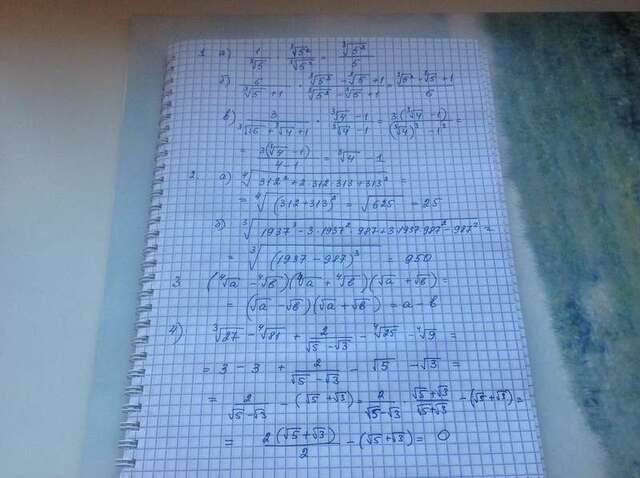 1. а) 1/∛5 · ∛5²/∛5² = ∛5²/5
б) 6/(∛5 + 1) · (∛5² - ∛5 + 1)/(∛5² - ∛5 + 1) = (∛5² - ∛5 + 1)/6
в) 3/(∛16 + ∛4 + 1) · (∛4 - 1)/(∛4 - 1) = 3(∛4 - 1)/((∛4)³ - 1³) =
= 3(∛4 - 1)/(4 - 1) = ∛4 - 1
2. а) ∜(312² + 2·312·313 + 313²) =
= ∜(312+313)² = √625 = 25
б) ∛(1937³ - 3·1937²·987 + 3·1937·987² - 987³) =
= ∛(1937 - 987)³ = 950
3. (∜a - ∜b)(∜a + ∜b)(√a + √b) =
= (√a - √b)(√a + √b) = a - b
4) ∛27 - ∜81 + 2/(√5 - √3) - ∜25 - ∜9 =
= 3 - 3 + 2/(√5 - √3) - √5 - √3 =
= 2/(√5 - √3) - (√5 + √3) = 2/(√5 - √3) · (√5 + √3)/(√5 + √3) - (√5 + √3) =
= 2(√5 + √3)/2 - (√5 + √3) = 0